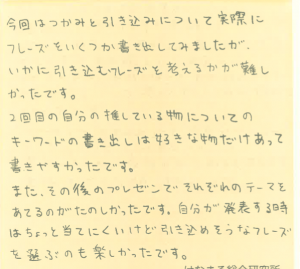 今回はつかみと引き込みについて実際に
フレーズをいくつか書き出してみましたが、
いかに引き込むフレーズと考えるかが難し
かったです。
2回目の自分の推している物についての
キーワードの書き出しは好きな物だけあって
書きやすかったです。
また、その後のプレゼンでそれぞれのテーマを
あてるのがたのしかったです。自分が発表する時
はちょっと当てにくいけど引き込めそうなフレーズ
を選ぶのも楽しかったです。